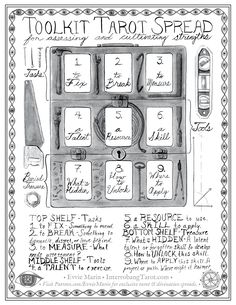 TOOLKIT TAROT SPREAD
for assessing and cultivating strengths
Tasks
1.
to
FIX
2.
to
BREAK
3.
to
MEASURE
4.
a
TALENT
5.
a
RESOURCE
6.
a
SKILL
Tools
7.
WHAT'S
HIDDEN
8.
HOW TO
UNLOCK
9.
WHERE
TO
APPLY
Buried
Treasure
TOP SHELF - Tasks
1 to FIX - Something to mend.
2 to BREAK - Something to
dismantle, disrupt, or leave behind.
3 to MEASURE - What
needs
MIDDLE SHELF - Tools
4 a TALENT to exercise.
5 a RESOURCE to use.
6 a SKILL to apply.
BOTTOM SHELF - Treasure
7 What's HIDDEN - A latent
talent or
8 How to UNLOCK this skill.
9 Where to APPLY this skill. A
project or path. Where might it
• Evvie Marin • InterrobangTarot.com •
Visit Patreon.com/EvvieMarin for exclusive tarot & divination spreads.